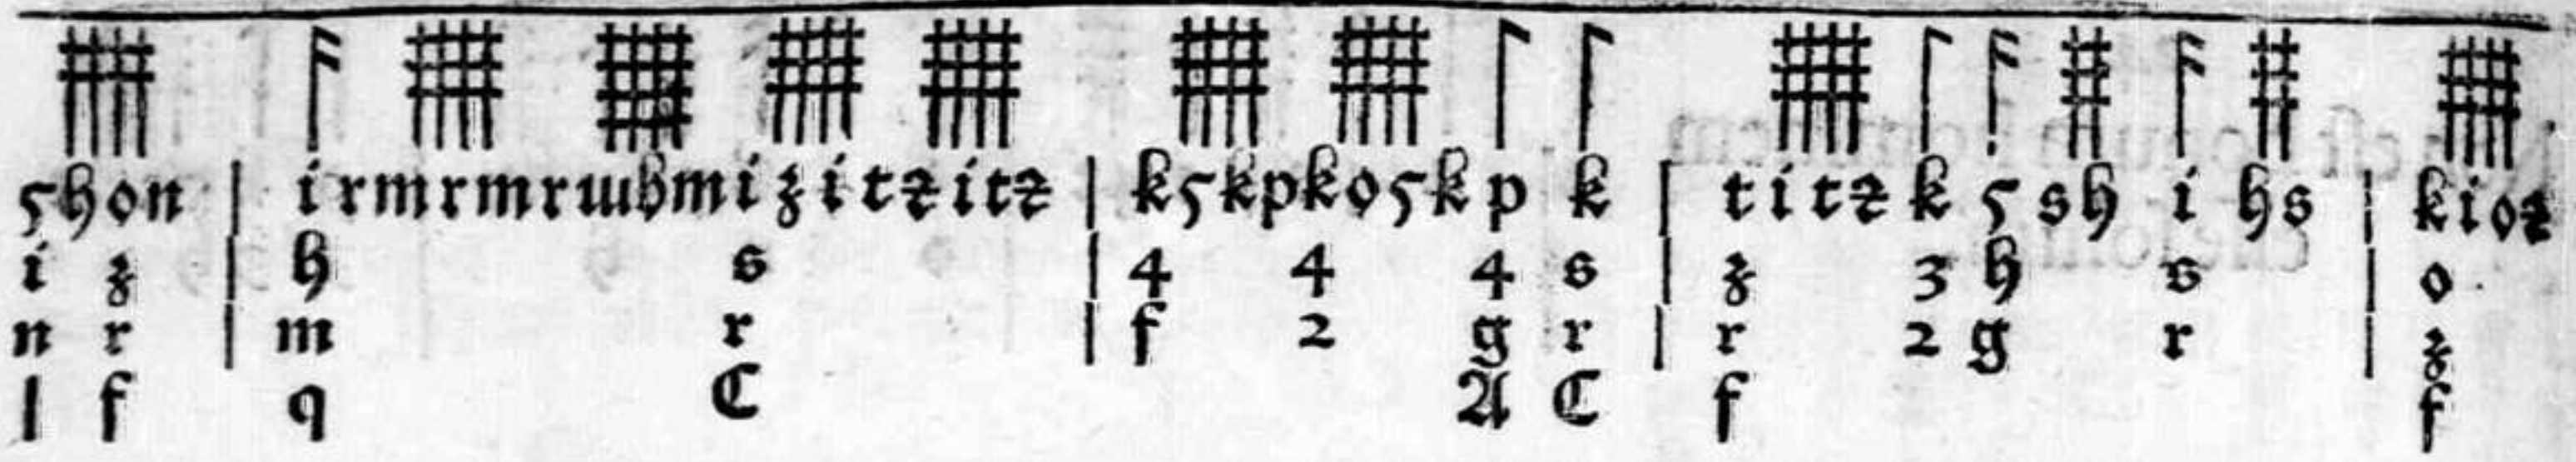 5hon | irmrmrmhmizitzitz | k5kpko5kp k | titz k 5sh i hs | kioz
i z | h s | 4 4 4 s | z 3 h s | o
n r | m r | f 2 g r | r 2 g r | z
l f q C A C f f